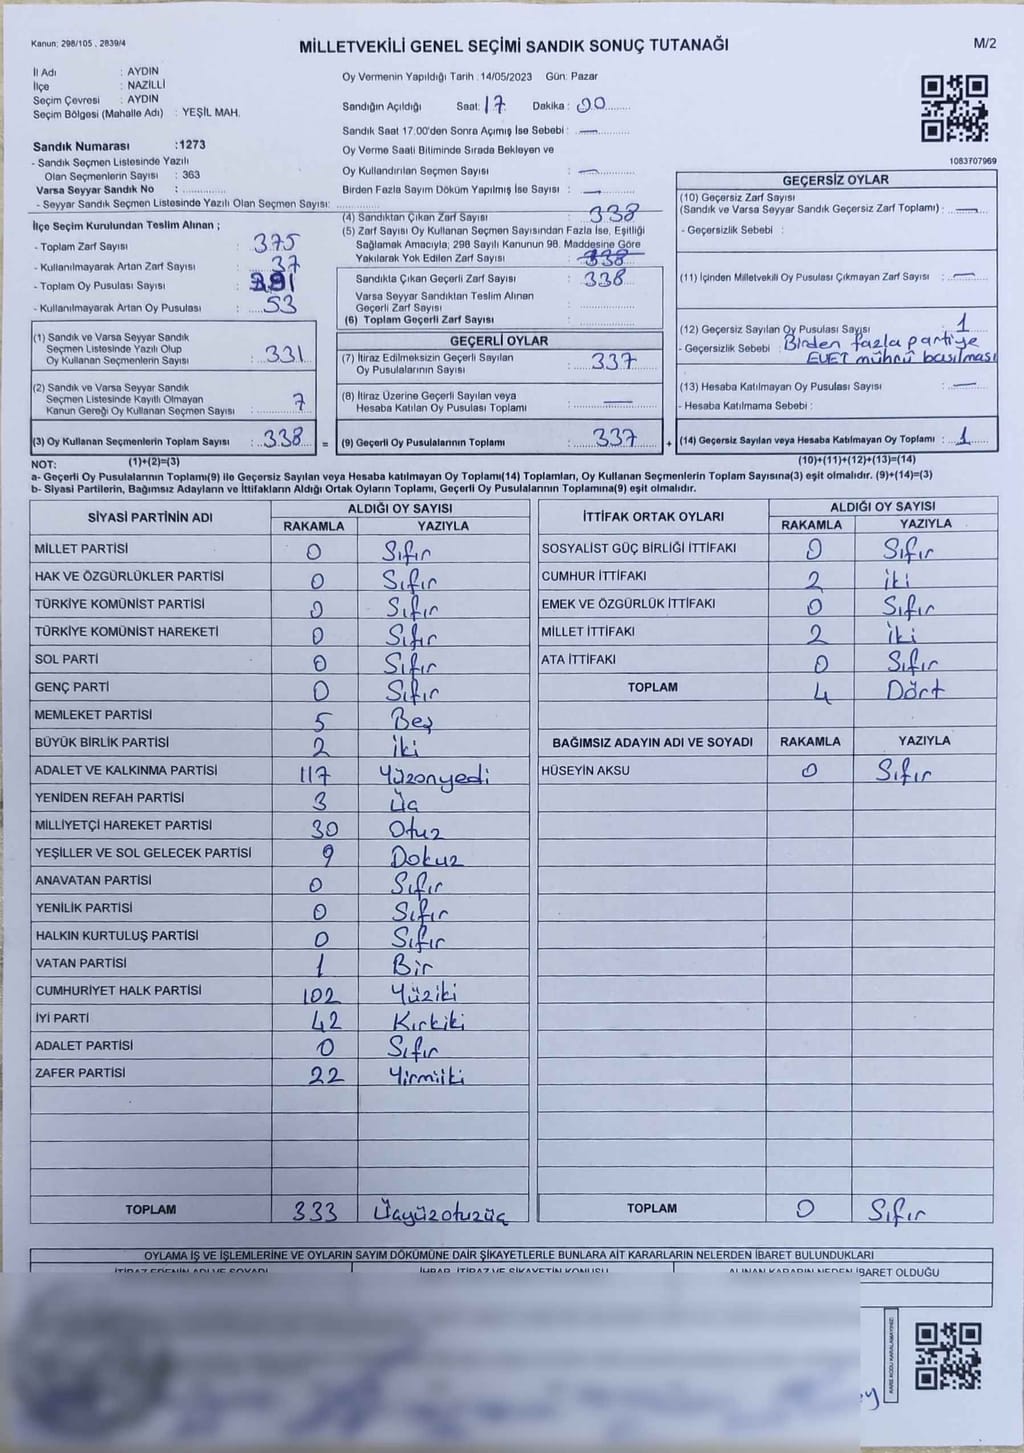 Kanun; 298/105 , 2839/4
MİLLETVEKİLİ GENEL SEÇİMİ SANDIK SONUÇ TUTANAĞI
M/2
İl Adı : AYDIN
İlçe : NAZİLLİ
Seçim Çevresi : AYDIN
Seçim Bölgesi (Mahalle Adı) : YEŞİL MAH.
Sandık Numarası :1273
- Sandık Seçmen Listesinde Yazılı
Olan Seçmenlerin Sayısı : 363
Varsa Seyyar Sandık No :
- Seyyar Sandık Seçmen Listesinde Yazılı Olan Seçmen Sayısı:
Oy Vermenin Yapıldığı Tarih :14/05/2023 Gün: Pazar
Sandığın Açıldığı Saat: 17 Dakika : 00
Sandık Saat 17.00'den Sonra Açımış İse Sebebi : —
Oy Verme Saati Bitiminde Sırada Bekleyen ve
Oy Kullandırılan Seçmen Sayısı : —
Birden Fazla Sayım Döküm Yapılmış İse Sayısı : —
1083707969
İlçe Seçim Kurulundan Teslim Alınan ;
- Toplam Zarf Sayısı : 375
- Kullanılmayarak Artan Zarf Sayısı : 37
- Toplam Oy Pusulası Sayısı : 391
- Kullanılmayarak Artan Oy Pusulası : 53
(1) Sandık ve Varsa Seyyar Sandık
Seçmen Listesinde Yazılı Olup
Oy Kullanan Seçmenlerin Sayısı : 331
(2) Sandık ve Varsa Seyyar Sandık
Seçmen Listesinde Kayıllı Olmayan
Kanun Gereği Oy Kullanan Seçmen Sayısı : 7
(3) Oy Kullanan Seçmenlerin Toplam Sayısı : 338 =
(4) Sandıktan Çıkan Zarf Sayısı : 338
(5) Zarf Sayısı Oy Kullanan Seçmen Sayısından Fazla İse, Eşitliği
Sağlamak Amacıyla; 298 Sayılı Kanunun 98. Maddesine Göre
Yakılarak Yok Edilen Zarf Sayısı : 338
Sandıkla Çıkan Geçerli Zarf Sayısı : 338
Varsa Seyyar Sandıktan Teslim Alınan
Geçerli Zarf Sayısı :
(6) Toplam Geçerli Zarf Sayısı :
GEÇERLİ OYLAR
(7) İtiraz Edilmeksizin Geçerli Sayılan
Oy Pusulalarının Sayısı : 337
(8) İtiraz Üzerine Geçerli Sayılan veya
Hesaba Katılan Oy Pusulası Toplamı : —
(9) Geçerli Oy Pusulalarının Toplamı : 337 +
GEÇERSİZ OYLAR
(10) Geçersiz Zarf Sayısı
(Sandık ve Varsa Seyyar Sandık Geçersiz Zarf Toplamı) : —
- Geçersizlik Sebebi :
(11) İçinden Milletvekili Oy Pusulası Çıkmayan Zarf Sayısı : —
(12) Geçersiz Sayılan Oy Pusulası Sayısı : 1
- Geçersizlik Sebebi : Birden fazla partiye
EVET mührü basılması
(13) Hesaba Katılmayan Oy Pusulası Sayısı : —
- Hesaba Katılmama Sebebi :
(14) Geçersiz Sayılan veya Hesaba Katılmayan Oy Toplamı : 1
NOT: (1)+(2)=(3)
(10)+(11)+(12)+(13)=(14)
a- Geçerli Oy Pusulalarının Toplamı(9) ile Geçersiz Sayılan veya Hesaba katılmayan Oy Toplamı(14) Toplamları, Oy Kullanan Seçmenlerin Toplam Sayısına(3) eşit olmalıdır. (9)+(14)=(3)
b- Siyasi Partilerin, Bağımsız Adayların ve İttifakların Aldığı Ortak Oyların Toplamı, Geçerli Oy Pusulalarının Toplamına(9) eşit olmalıdır.
SİYASİ PARTİNİN ADI ALDIĞI OY SAYISI
RAKAMLA YAZIYLA
MİLLET PARTİSİ 0 Sıfır
HAK VE ÖZGÜRLÜKLER PARTİSİ 0 Sıfır
TÜRKİYE KOMÜNİST PARTİSİ 0 Sıfır
TÜRKİYE KOMÜNİST HAREKETİ 0 Sıfır
SOL PARTİ 0 Sıfır
GENÇ PARTİ 0 Sıfır
MEMLEKET PARTİSİ 5 Beş
BÜYÜK BİRLİK PARTİSİ 2 iki
ADALET VE KALKINMA PARTİSİ 117 Yüzonyedi
YENİDEN REFAH PARTİSİ 3 Üç
MİLLİYETÇİ HAREKET PARTİSİ 30 Otuz
YEŞİLLER VE SOL GELECEK PARTİSİ 9 Dokuz
ANAVATAN PARTİSİ 0 Sıfır
YENİLİK PARTİSİ 0 Sıfır
HALKIN KURTULUŞ PARTİSİ 0 Sıfır
VATAN PARTİSİ 1 Bir
CUMHURİYET HALK PARTİSİ 102 Yüziki
İYİ PARTİ 42 Kırkiki
ADALET PARTİSİ 0 Sıfır
ZAFER PARTİSİ 22 Yirmiiki
TOPLAM 333 Üçyüzotuzüç
İTTİFAK ORTAK OYLARI ALDIĞI OY SAYISI
RAKAMLA YAZIYLA
SOSYALİST GÜÇ BİRLİĞİ İTTİFAKI 0 Sıfır
CUMHUR İTTİFAKI 2 iki
EMEK VE ÖZGÜRLÜK İTTİFAKI 0 Sıfır
MİLLET İTTİFAKI 2 iki
ATA İTTİFAKI 0 Sıfır
TOPLAM 4 Dört
BAĞIMSIZ ADAYIN ADI VE SOYADI RAKAMLA YAZIYLA
HÜSEYİN AKSU 0 Sıfır
TOPLAM 0 Sıfır
OYLAMA İŞ VE İŞLEMLERİNE VE OYLARIN SAYIM DÖKÜMÜNE DAİR ŞİKAYETLERLE BUNLARA AİT KARARLARIN NELERDEN İBARET BULUNDUKLARI
İTİRAZ EDENİN ADI VE SOYADI İHBAR, İTİRAZ VE ŞİKAYETİN KONUSU ALINAN KARARIN NEDEN İBARET OLDUĞU
KARE KODU KARALAMAYINIZ.